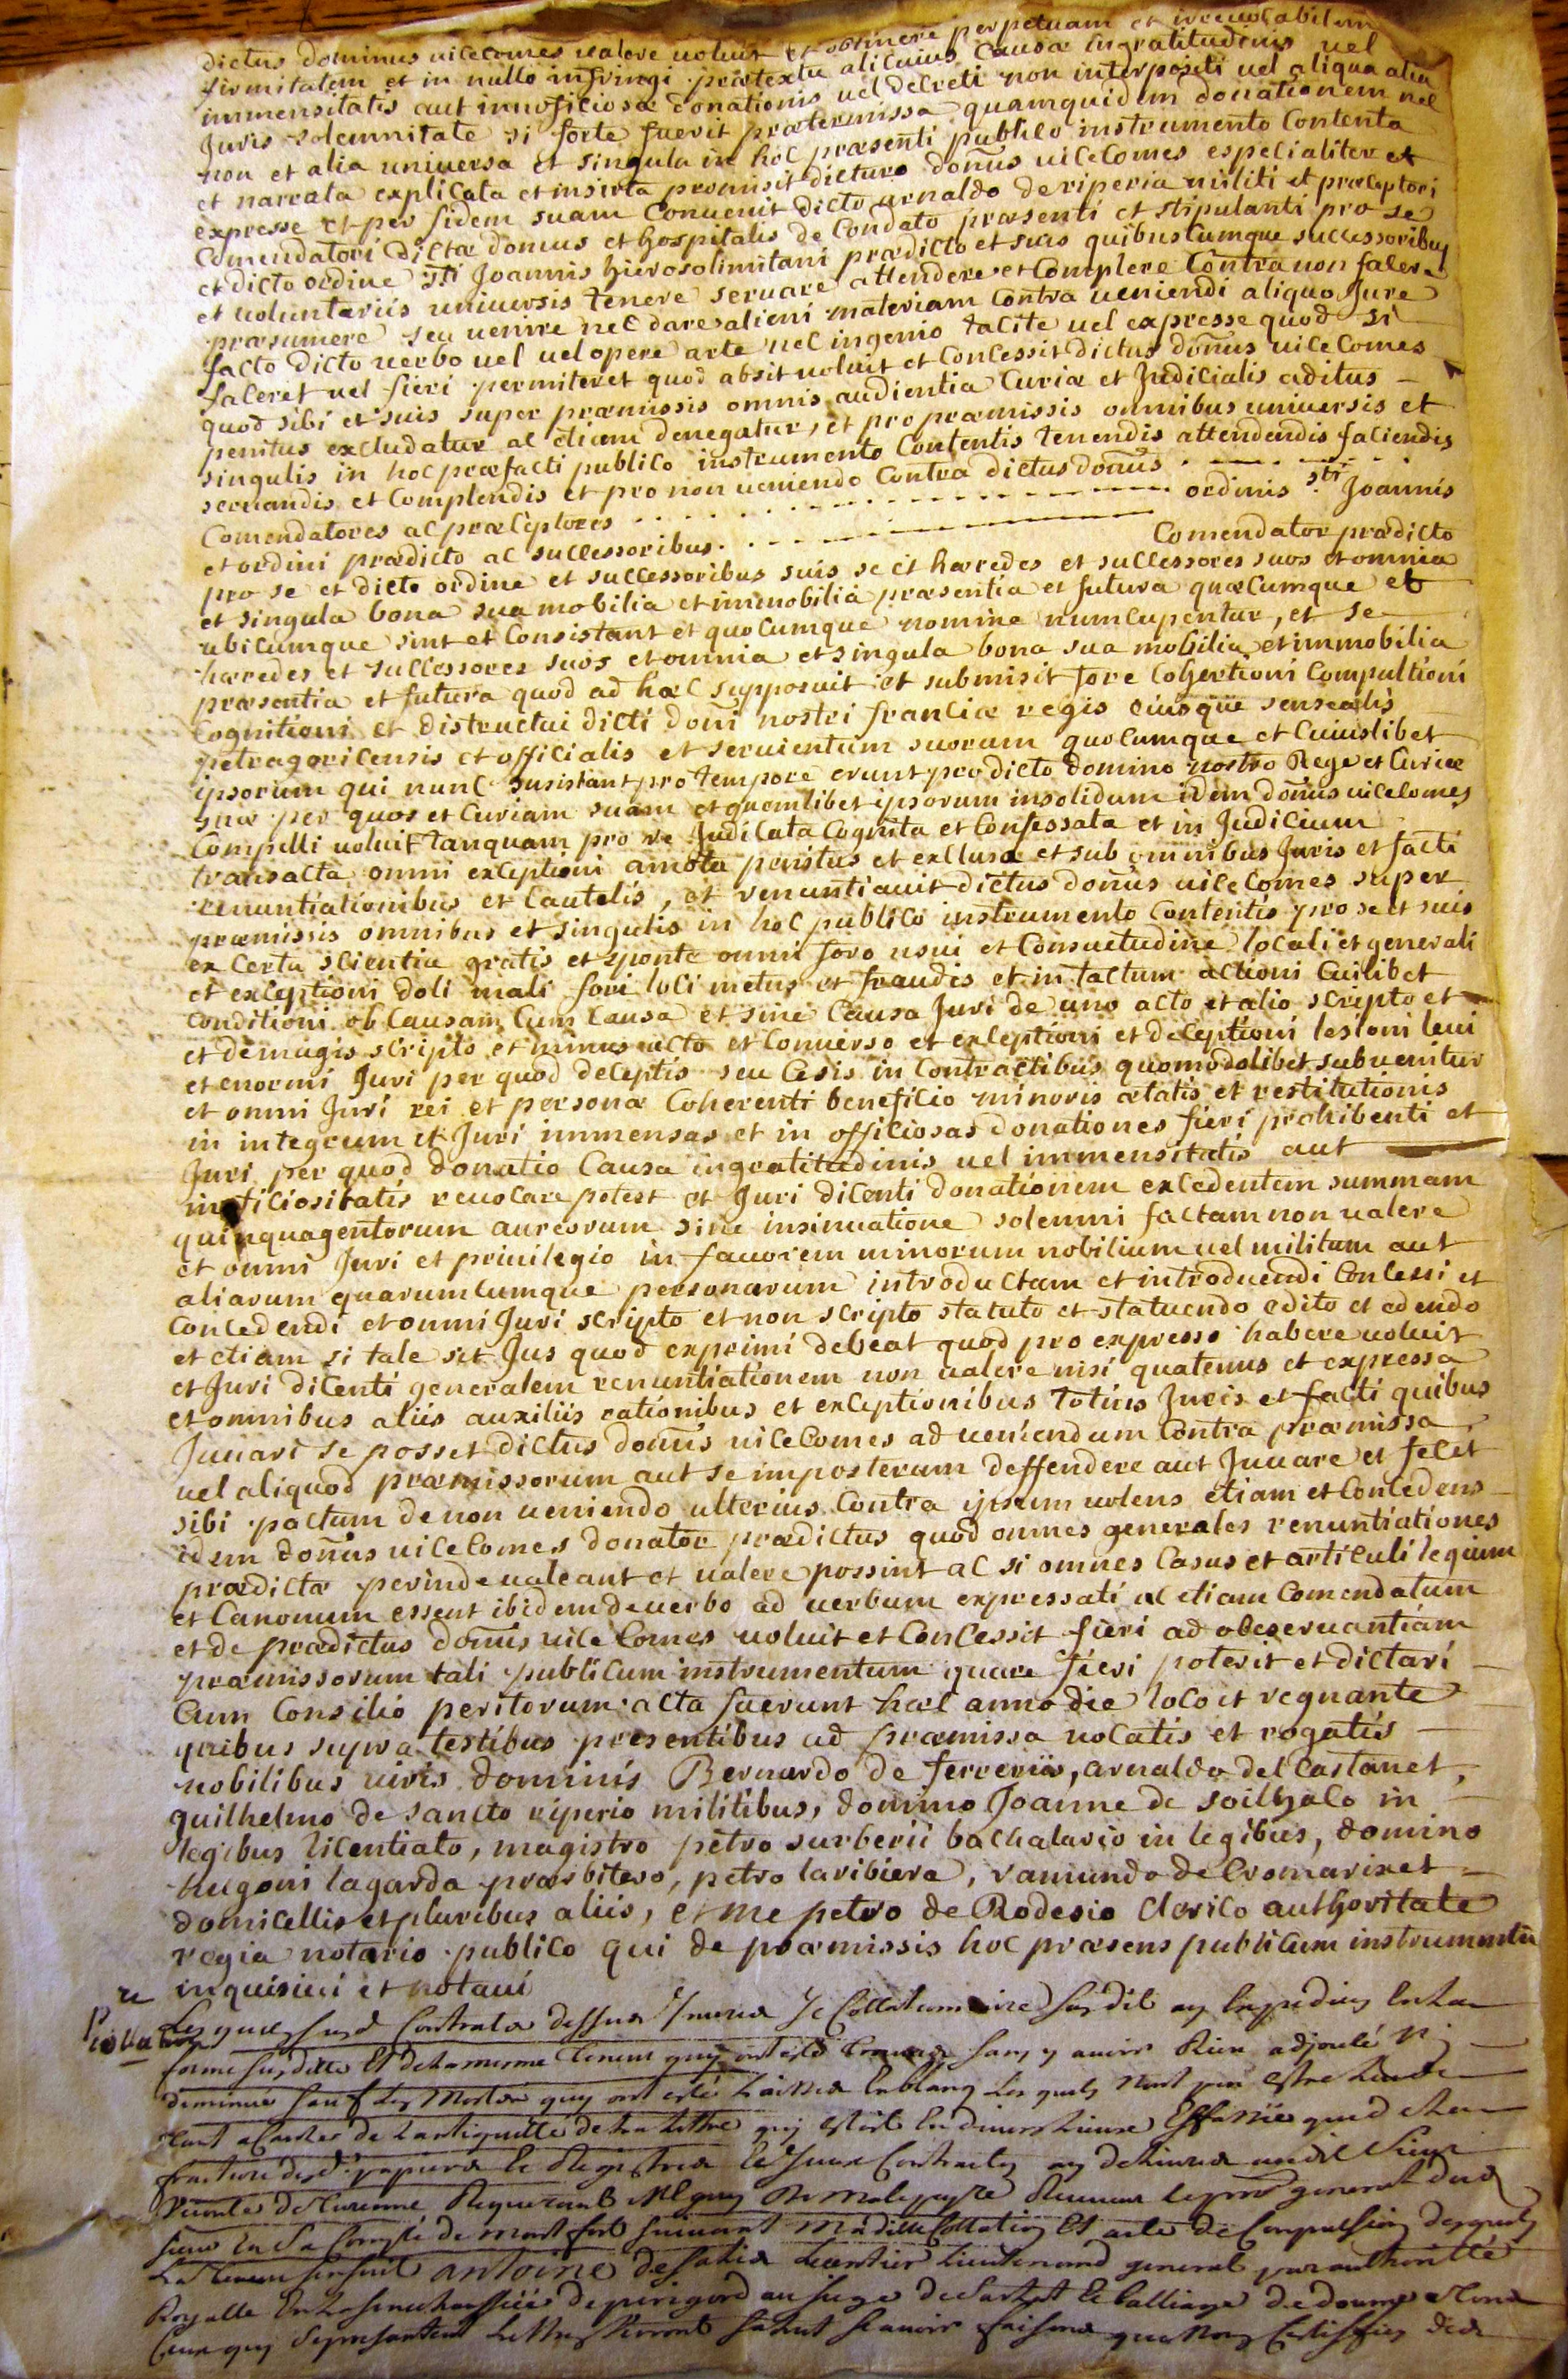 dictus dominus vicecomes valere voluit et obtinere perpetuam et irrevocabilem
firmitatem et in nullo infringi prætextu alicuius causæ ingratitudinis vel
immensitatis aut innoficiosæ donationis vel decreti non interpositi vel aliqua alia
Juris solemnitate si forte fuerit prætermissa quamquidem donationem nec
non et alia universa et singula in hoc præsenti publico instrumento contenta
et narrata explicata et inserta promisit dictus doñus vicecomes especialiter et
expresse et per fidem suam convenit dicto arnaldo de riperia militi et præceptori
Comendatori dictæ domus et hospitalis de Condato præsenti et stipulanti pro se
et dicto ordine sti Joannis hierosolimitani prædicto et suis quibuscumque successoribus
et voluntariis universis tenere servare attendere et complere contra non facere
præsumere seu venire nec dare alicui materiam contra veniendi aliquo Jure
facto dicto verbo vel vel opere arte nec ingenio tacite vel expresse quod si
faceret vel fieri permiteret quod absit voluit et concessit dictus doñus vicecomes
quod sibi et suis super præmissis omnis audientia Curiæ et Judicialis aditus —
penitus excludatur ac etiam denegatur, et pro præmissis omnibus universis et
singulis in hoc præfacti publico instrumento contentis tenendis attendendis faciendis
servandis et Complendis et pro non veniendo Contra dictus doñus
Comendatores ac præceptores . . . ordinis sti Joannis
et ordini prædicto ac successoribus . . . Comendator prædicto
pro se et dicto ordine et successoribus suis se et hæredes et successores suos et omnia
et singula bona sua mobilia et immobilia præsentia et futura quæcumque et
ubicumque sint et Consistant et quocumque nomine numcupentur, et se
hæredes et successores suos et omnia et singula bona sua mobilia et immobilia
præsentia et futura quod ad hæc supposuit et submisit fore cohertioni Compultioni
Cognitioni et distructui dicti doñi nostri franciæ regis eiusque senscalis
petragoricensis et officialis et servientum suorum quocumque et cuiuslibet
ipsorum qui nunc susistant pro tempore erunt pro dicto domino nostro Rege et Curiæ
suæ per quos et Curiam suam et quemlibet ipsorum insolidum idem doñus vicecomes
Compelli voluit tanquam pro re Judicata Cognita et Confessata et in Judicium
transacta omni exceptioni amota penitus et exclusa et sub omnibus Juris et facti
renuntiationibus et Cautelis, et renuntiavit dictus doñus vicecomes super
præmissis omnibus et singulis in hoc publico instrumento contentis pro se et suis
ex Certa scientia gratis et sponte omni foro usui et Consuetudine locali et generali
et exceptioni doli mali fori loci metus et fraudis et in factum actioni cuilibet
conditioni ob Causam Cum Causa et sine Causa Juri de uno acto et alio scripto et
et demagis scripto et minus acto et Converso et exceptioni et deceptioni lesioni levi
et enormi Juri per quod deceptis seu lesis in Contractibus quomodolibet subvenitur
et omni Juri rei et personæ Coherenti beneficio minoris ætatis et restitutionis
in integrum et Juri immensas et in officiosas donationes fieri prohibenti et
Juri per quod donatio Causa ingratitudinis vel immensitatis aut
inoficiositatis revocare potest et Juri dicenti donationem excedentem summam
quinquagentorum aureorum sine insinuatione solemni factam non valere
et omni Juri et privilegio in favorem minorum nobilium vel militum aut
aliarum quarumcumque personarum introductam et introduendi Concessi et
Concedendi et omni Juri scripto et non scripto statuto et statuendo edito et edendo
et etiam si tale sit Jus quod exprimi debeat quod pro expresso habere voluit
et Juri dicenti generalem renuntiationem non valere nisi quatenus et expressa
et omnibus aliis auxiliis rationibus et exceptionibus totius Juris et facti quibus
Juvari se posset dictus doñus vicecomes ad veniendum Contra præmissa
vel aliquod præmissorum aut se imposterum deffendere aut Juvare et fecit
sibi pactum de non veniendo ulterius Contra ipsum volens etiam et Concedens
idem doñus vicecomes donator prædictus quod omnes generales renuntiationes
prædictæ perinde valeant et valere possint ac si omnes Casus et articuli legum
et Canonum essent ibidem de verbo ad verbum expressati ac etiam Comendatum
et de prædictus doñus vicecomes voluit et Concessit fieri ad observantiam
præmissorum tali publicum instrumentum quare fieri poterit et dictari
Cum Consilio peritorum acta fuerunt hæc anno die loco et regnante
quibus supra testibus presentibus ad præmissa vocatis et rogatis
nobilibus viris dominis Bernardo de ferreriis, arnaldo del Castanet,
guilhelmo de sancto riperio militibus, domino Joanne de soilhalo in
legibus licentiato, magistro petro surberii bachalario in legibus, domino
hugoni lagarda præsbitero, petro laribiera, ramundo de Cromarix et
domicellis et pluribus aliis, et me petro de Rodesio clerico authoritate
regia notario publico qui de præmissis hoc præsens publicum instrumentũ
inquisivi et notavi
forme susditte Et de la mesme teneur quy ont esté sans y avoir Rien adjouté ny
diminué sauf les mots quy ont esté laissés En blanc les quels nont peu estre
a Causes de lantiquitté de la lettre
antoine de general par authoritté
Royalle En la senechaussée de perigord au siege de Sarlat et balliage de